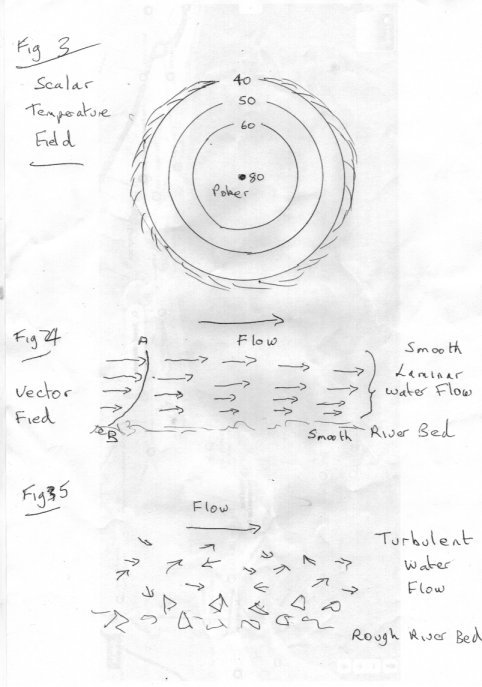 Fig 3
Scalar
Temperature
Field
40
50
60
80
Poker
Fig 4
Vector
Fied
A
B
Flow
Smooth
Laminar
Water Flow
Smooth River Bed
Fig 5
Flow
Turbulent
Water
Flow
Rough River Bed